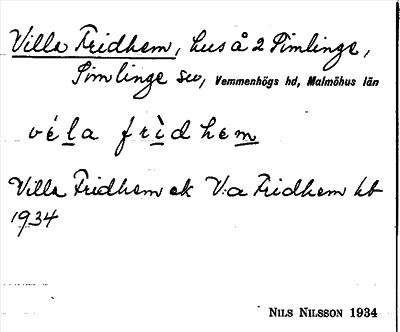 Villa Fridhem, hus å 2 Simlinge,
Simlinge sn, Vemmenhögs hd, Malmöhus län
véla frìdhem
Villa Fridhem ek V:a Fridhem kt
1934
NILS NILSSON 1934